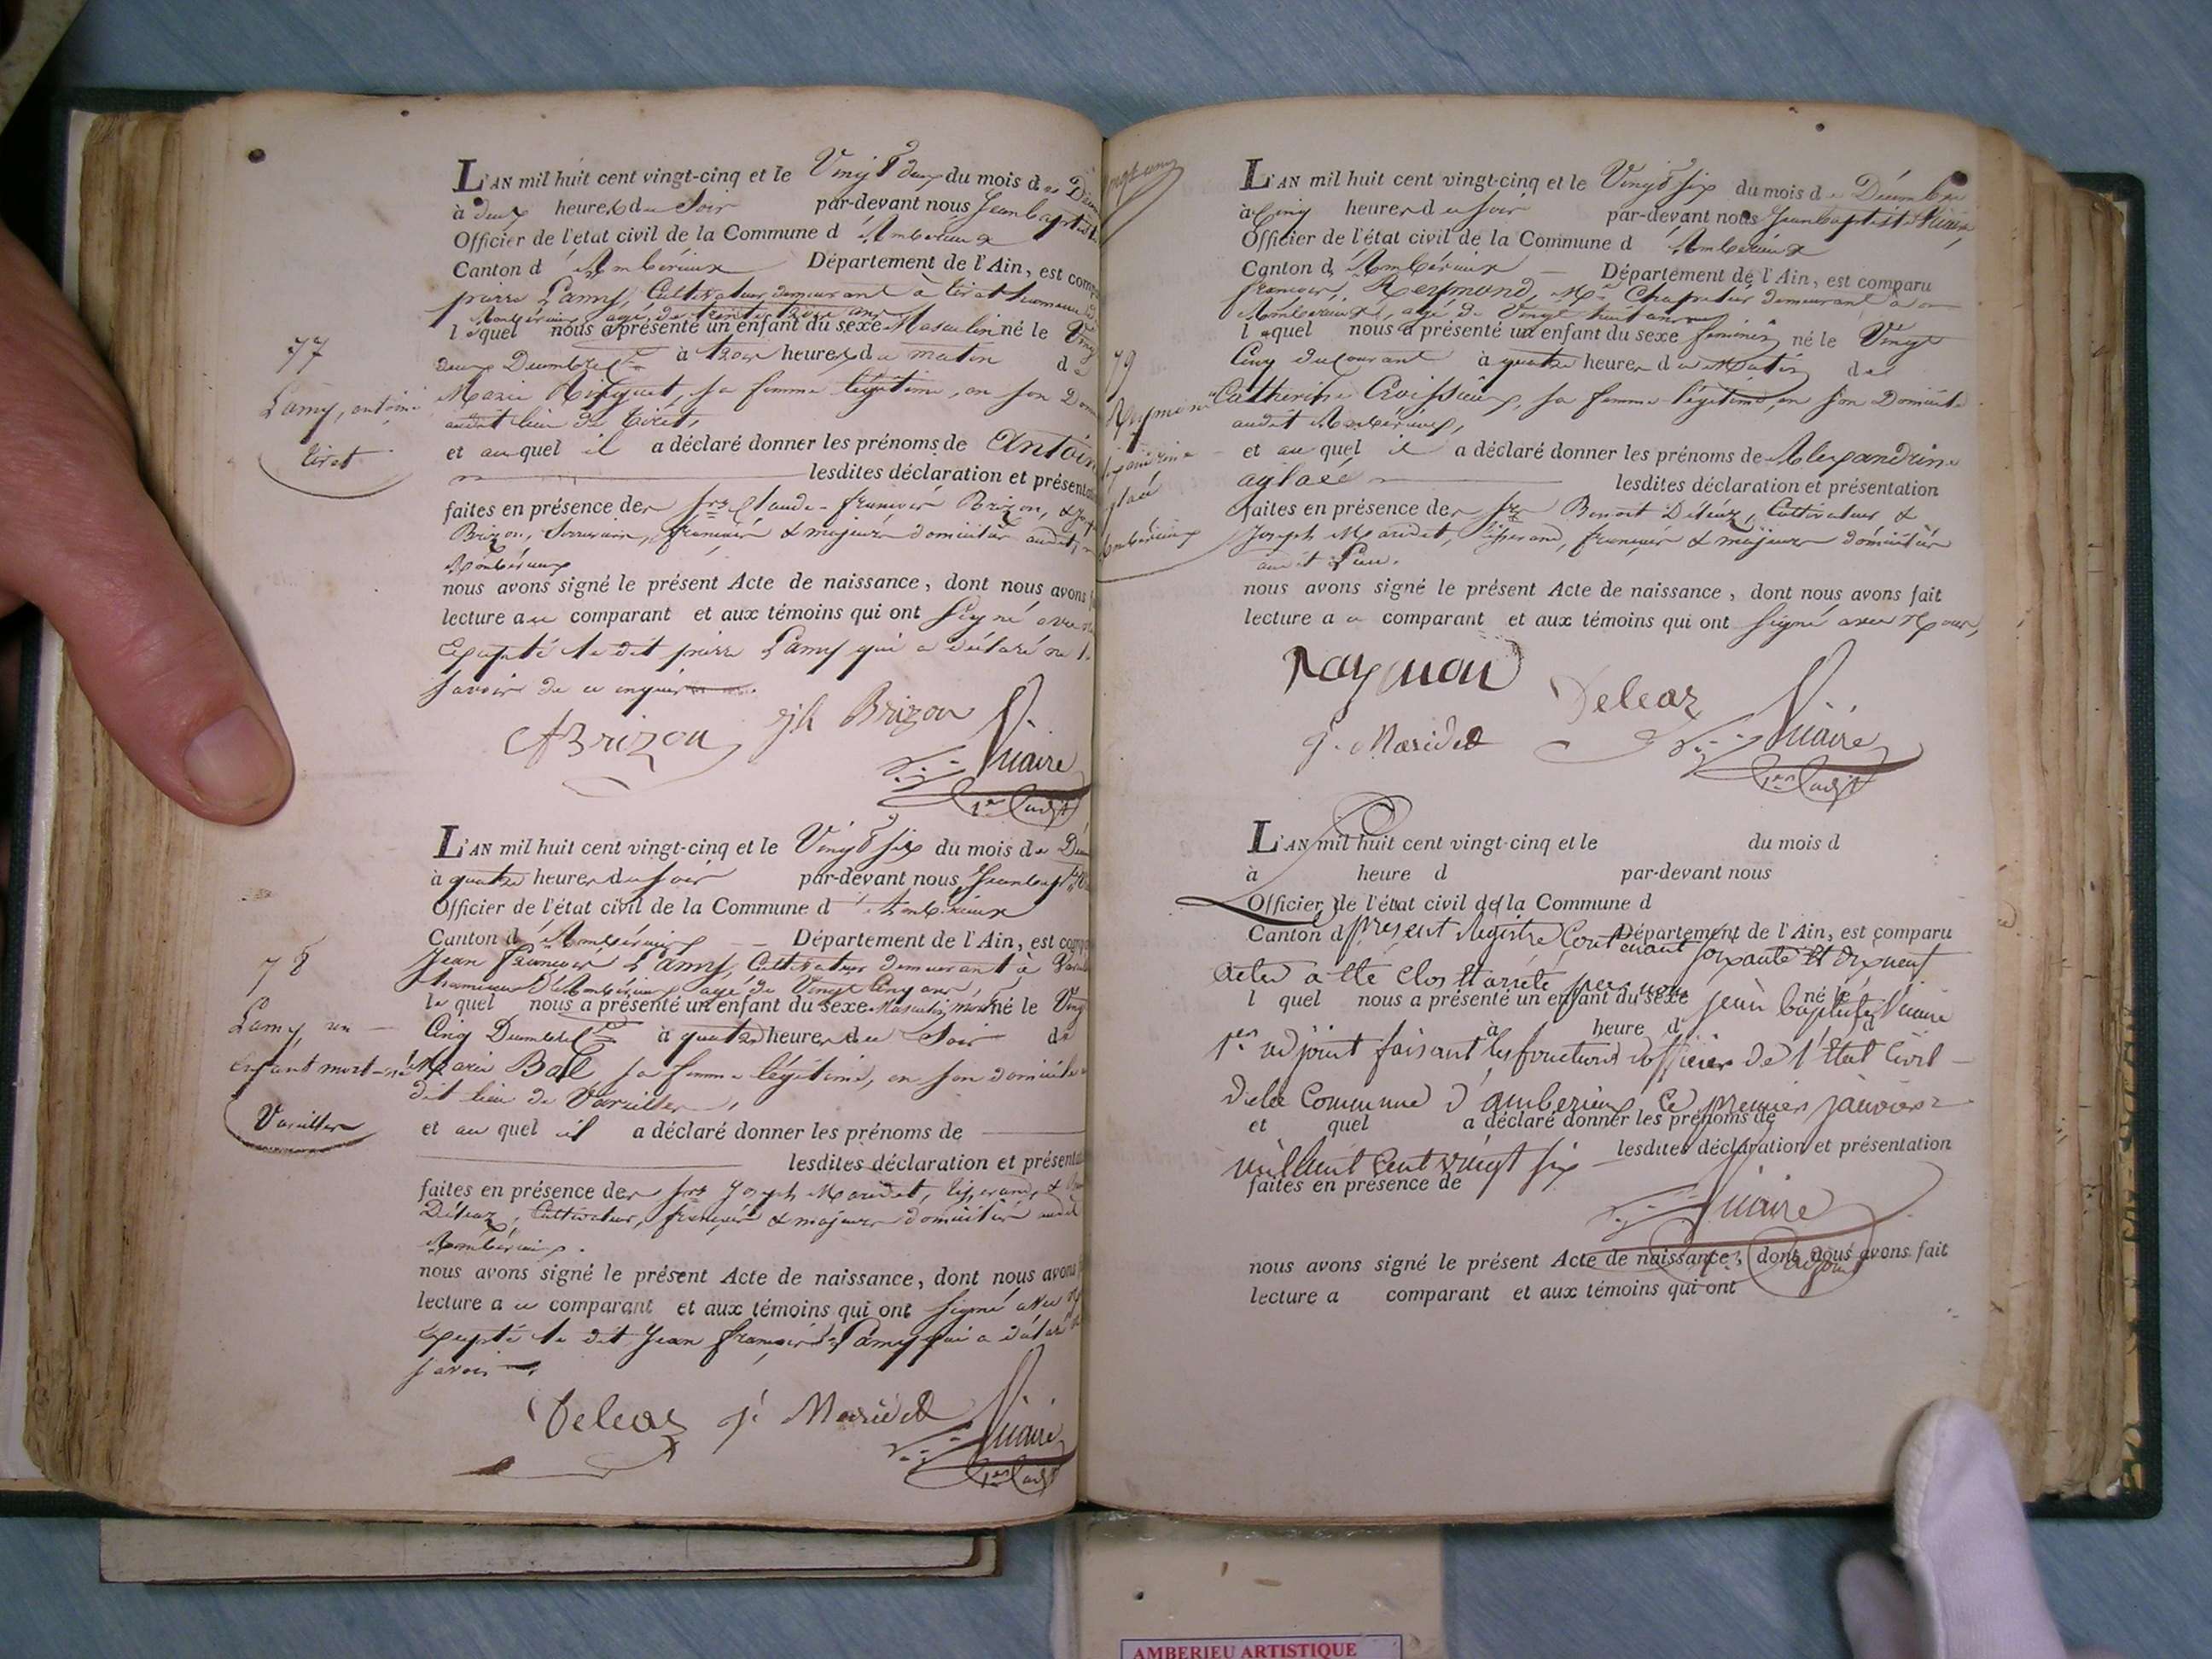 L'AN mil huit cent vingt-cinq et le Vingt deux du mois de
à deux heures du Soir par-devant nous Jean baptiste
Officier de l'état civil de la Commune d'Ambérieux
Canton d'Ambérieux Département de l'Ain, est
pierre Lamy, Cultivateur demeurant à tiret hameau
Ambérieux, agé de trente trois ans
lequel nous a présenté un enfant du sexe Masculin né le
deux Décembre à trois heures du matin de
Marie sa femme légitime, en son
audit lieu de tiret,
et auquel il a déclaré donner les prénoms de
lesdites déclaration et
faites en présence des Srs Claude-françois Brizon, &
Brizon, français & majeurs domiciliés audit
Ambérieux
nous avons signé le présent Acte de naissance, dont nous avons
lecture au comparant et aux témoins qui ont signé avec
Excepté le dit pierre Lamy qui a déclaré ne
savoir de ce enquis
77
Lamy, antoine
tiret
Brizon
jh Brizon
Vicaire
1er adjt
L'AN mil huit cent vingt-cinq et le Vingt six du mois de
à quatre heures du soir par-devant nous
Officier de l'état civil de la Commune d'Ambérieux
Canton d'Ambérieux Département de l'Ain, est
Jean François Lamy, Cultivateur demeurant à
hameau d'Ambérieux agé de Vingt Cinq ans,
lequel nous a présenté un enfant du sexe Masculin, mort né le
Cinq Décembre à quatre heures du Soir de
Marie sa femme légitime, en son domicile
dit lieu de Vareilles,
et auquel il a déclaré donner les prénoms de
lesdites déclaration et
faites en présence des Srs Joseph Maridet, tisserand, &
Déléaz, Cultivateur, français & majeurs domiciliés
Ambérieux.
nous avons signé le présent Acte de naissance, dont nous avons
lecture au comparant et aux témoins qui ont signé avec
Excepté le dit Jean françois Lamy qui a déclaré
savoir
78
Lamy, un
enfant mort-né
Vareilles
Deleaz
j. Maridet
Vicaire
1er adjt
L'AN mil huit cent vingt-cinq et le Vingt six du mois de Décembre
à Cinq heures du soir par-devant nous Jean baptiste Vicaire,
Officier de l'état civil de la Commune d'Ambérieux
Canton d'Ambérieux Département de l'Ain, est comparu
françois Reymond, Me Chapelier demeurant à
Ambérieux, agé de Vingt huit ans
lequel nous a présenté un enfant du sexe féminin né le Vingt
Cinq du Courant à quatre heures du Matin de
Catherine sa femme légitime, en son Domicile
audit Ambérieux,
et auquel il a déclaré donner les prénoms de Alexandrine
aglaé lesdites déclaration et présentation
faites en présence des Srs Benoit Déléaz, Cultivateur &
Joseph Maridet, tisserand, français & majeurs domiciliés
audit Lieu.
nous avons signé le présent Acte de naissance, dont nous avons fait
lecture au comparant et aux témoins qui ont signé avec Nous,
79
Raymond
Deleaz
j. Maridet
Vicaire
1er adjt
L'AN mil huit cent vingt-cinq et le du mois d
à heure d par-devant nous
Officier de l'état civil de la Commune d
Canton d Département de l'Ain, est comparu
présent Registre Contenant soixante et dixneuf
actes a été Clos et arrêté par nous jean baptiste Vicaire
l quel nous a présenté un enfant du sexe né le
à heure d d
1er adjoint faisant les fonctions d'officier de l'Etat Civil
de la Commune d'amberieux Ce premier janvier
et quel a déclaré donner les prénoms de
lesdites déclaration et présentation
mil huit Cent vingt six
faites en présence de
Vicaire
nous avons signé le présent Acte de naissance, dont nous avons fait
lecture a comparant et aux témoins qui ont
AMBERIEU ARTISTIQUE